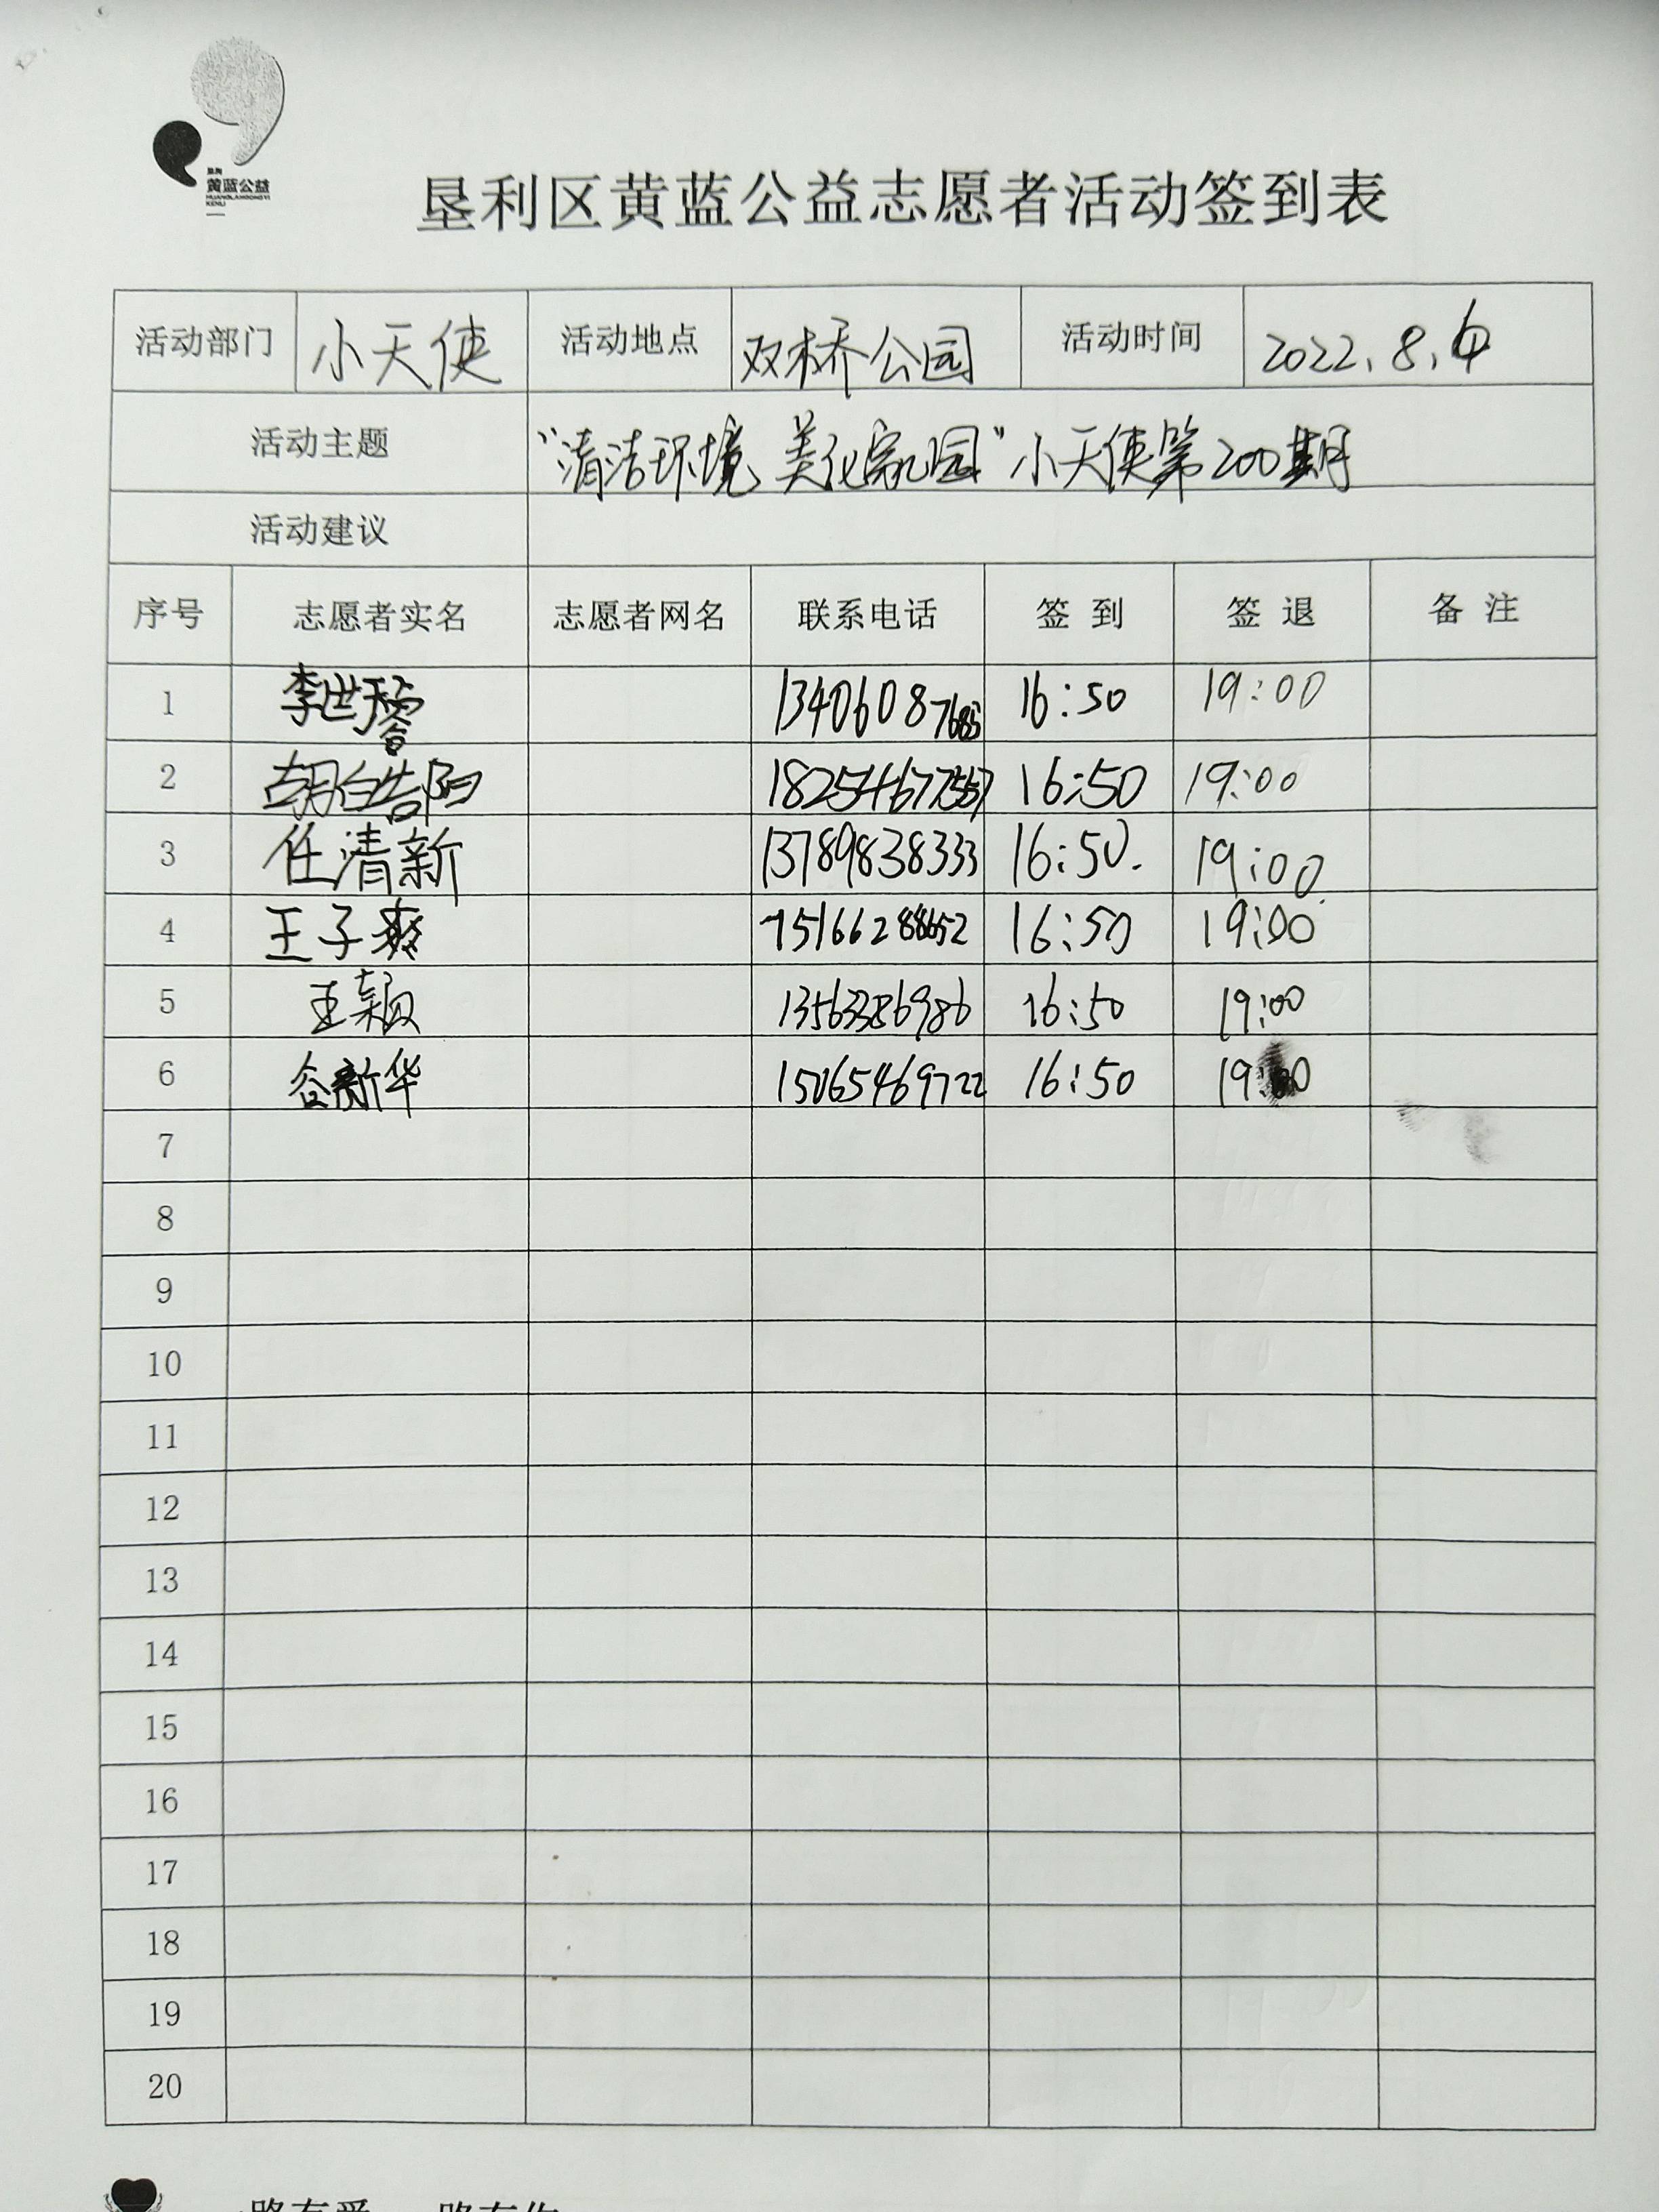 黄蓝公益
HUANGLANGONGYI
KENLI
垦利区黄蓝公益志愿者活动签到表
活动部门 小天使 活动地点 双桥公园 活动时间 2022.8.
活动主题 “清洁环境 美化家园”小天使第200期
活动建议
序号 志愿者实名 志愿者网名 联系电话 签到 签退 备注
1 李世 1340608 16:50 19:00
2 胡皓阳 18254677557 16:50 19:00
3 任清新 13789838333 16:50. 19:00
4 王子爽 15166288652 16:50 19:00
5 王颖 13563386986 16:50 19:00
6 谷新华 15065469722 16:50 19:00
7
8
9
10
11
12
13
14
15
16
17
18
19
20